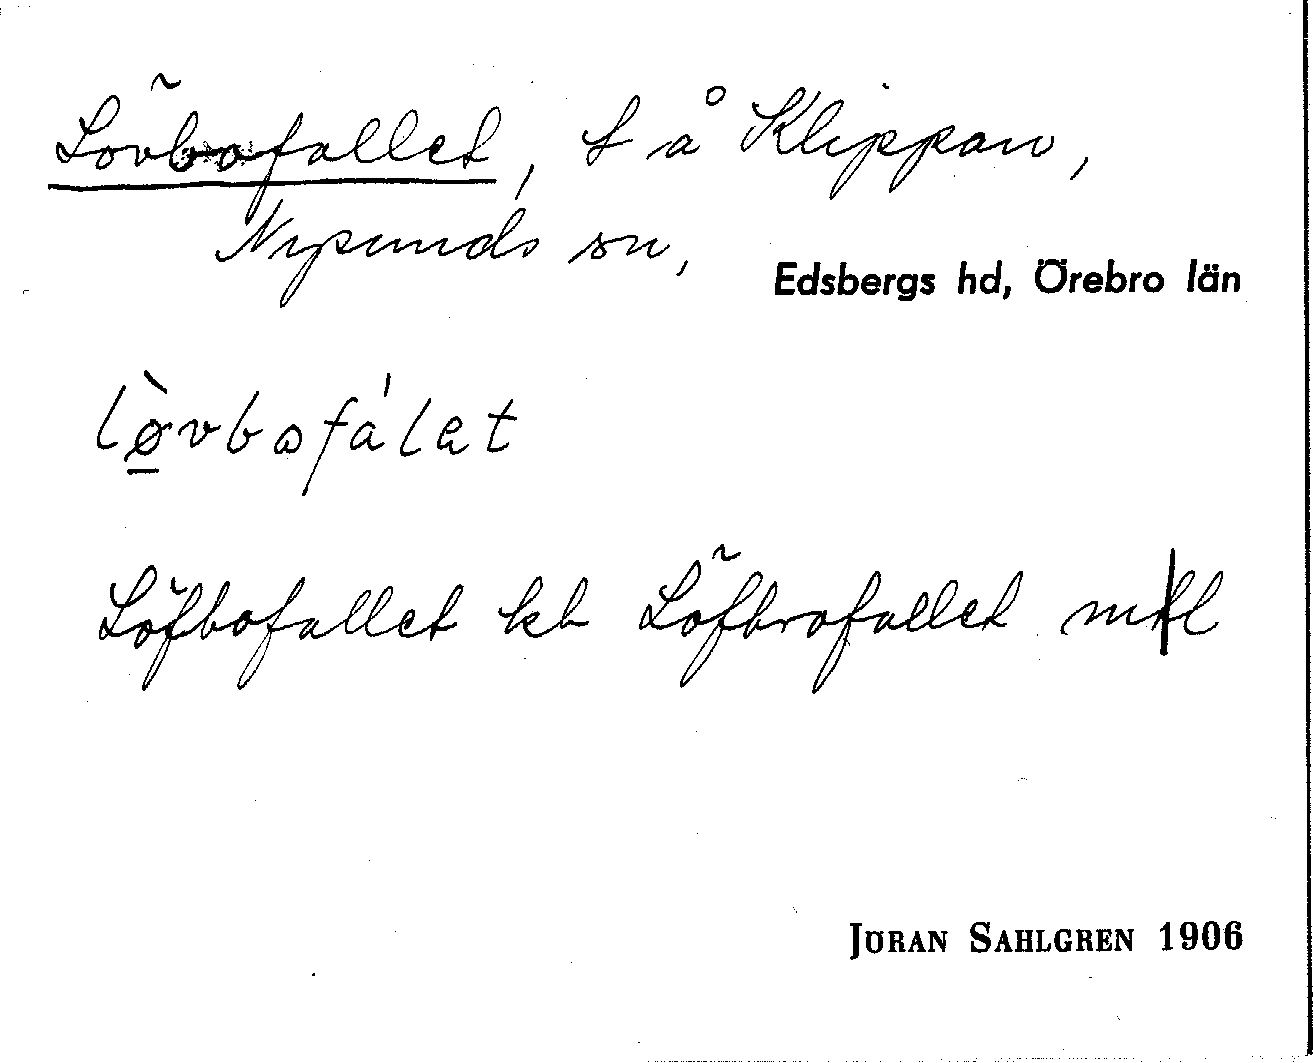 Lövbofallet, t å Klippan,
Nysunds sn,
Edsbergs hd, Örebro län
lø̀vbofálet
Löfbofallet kb Löfbrofallet mtl
JÖRAN SAHLGREN 1906